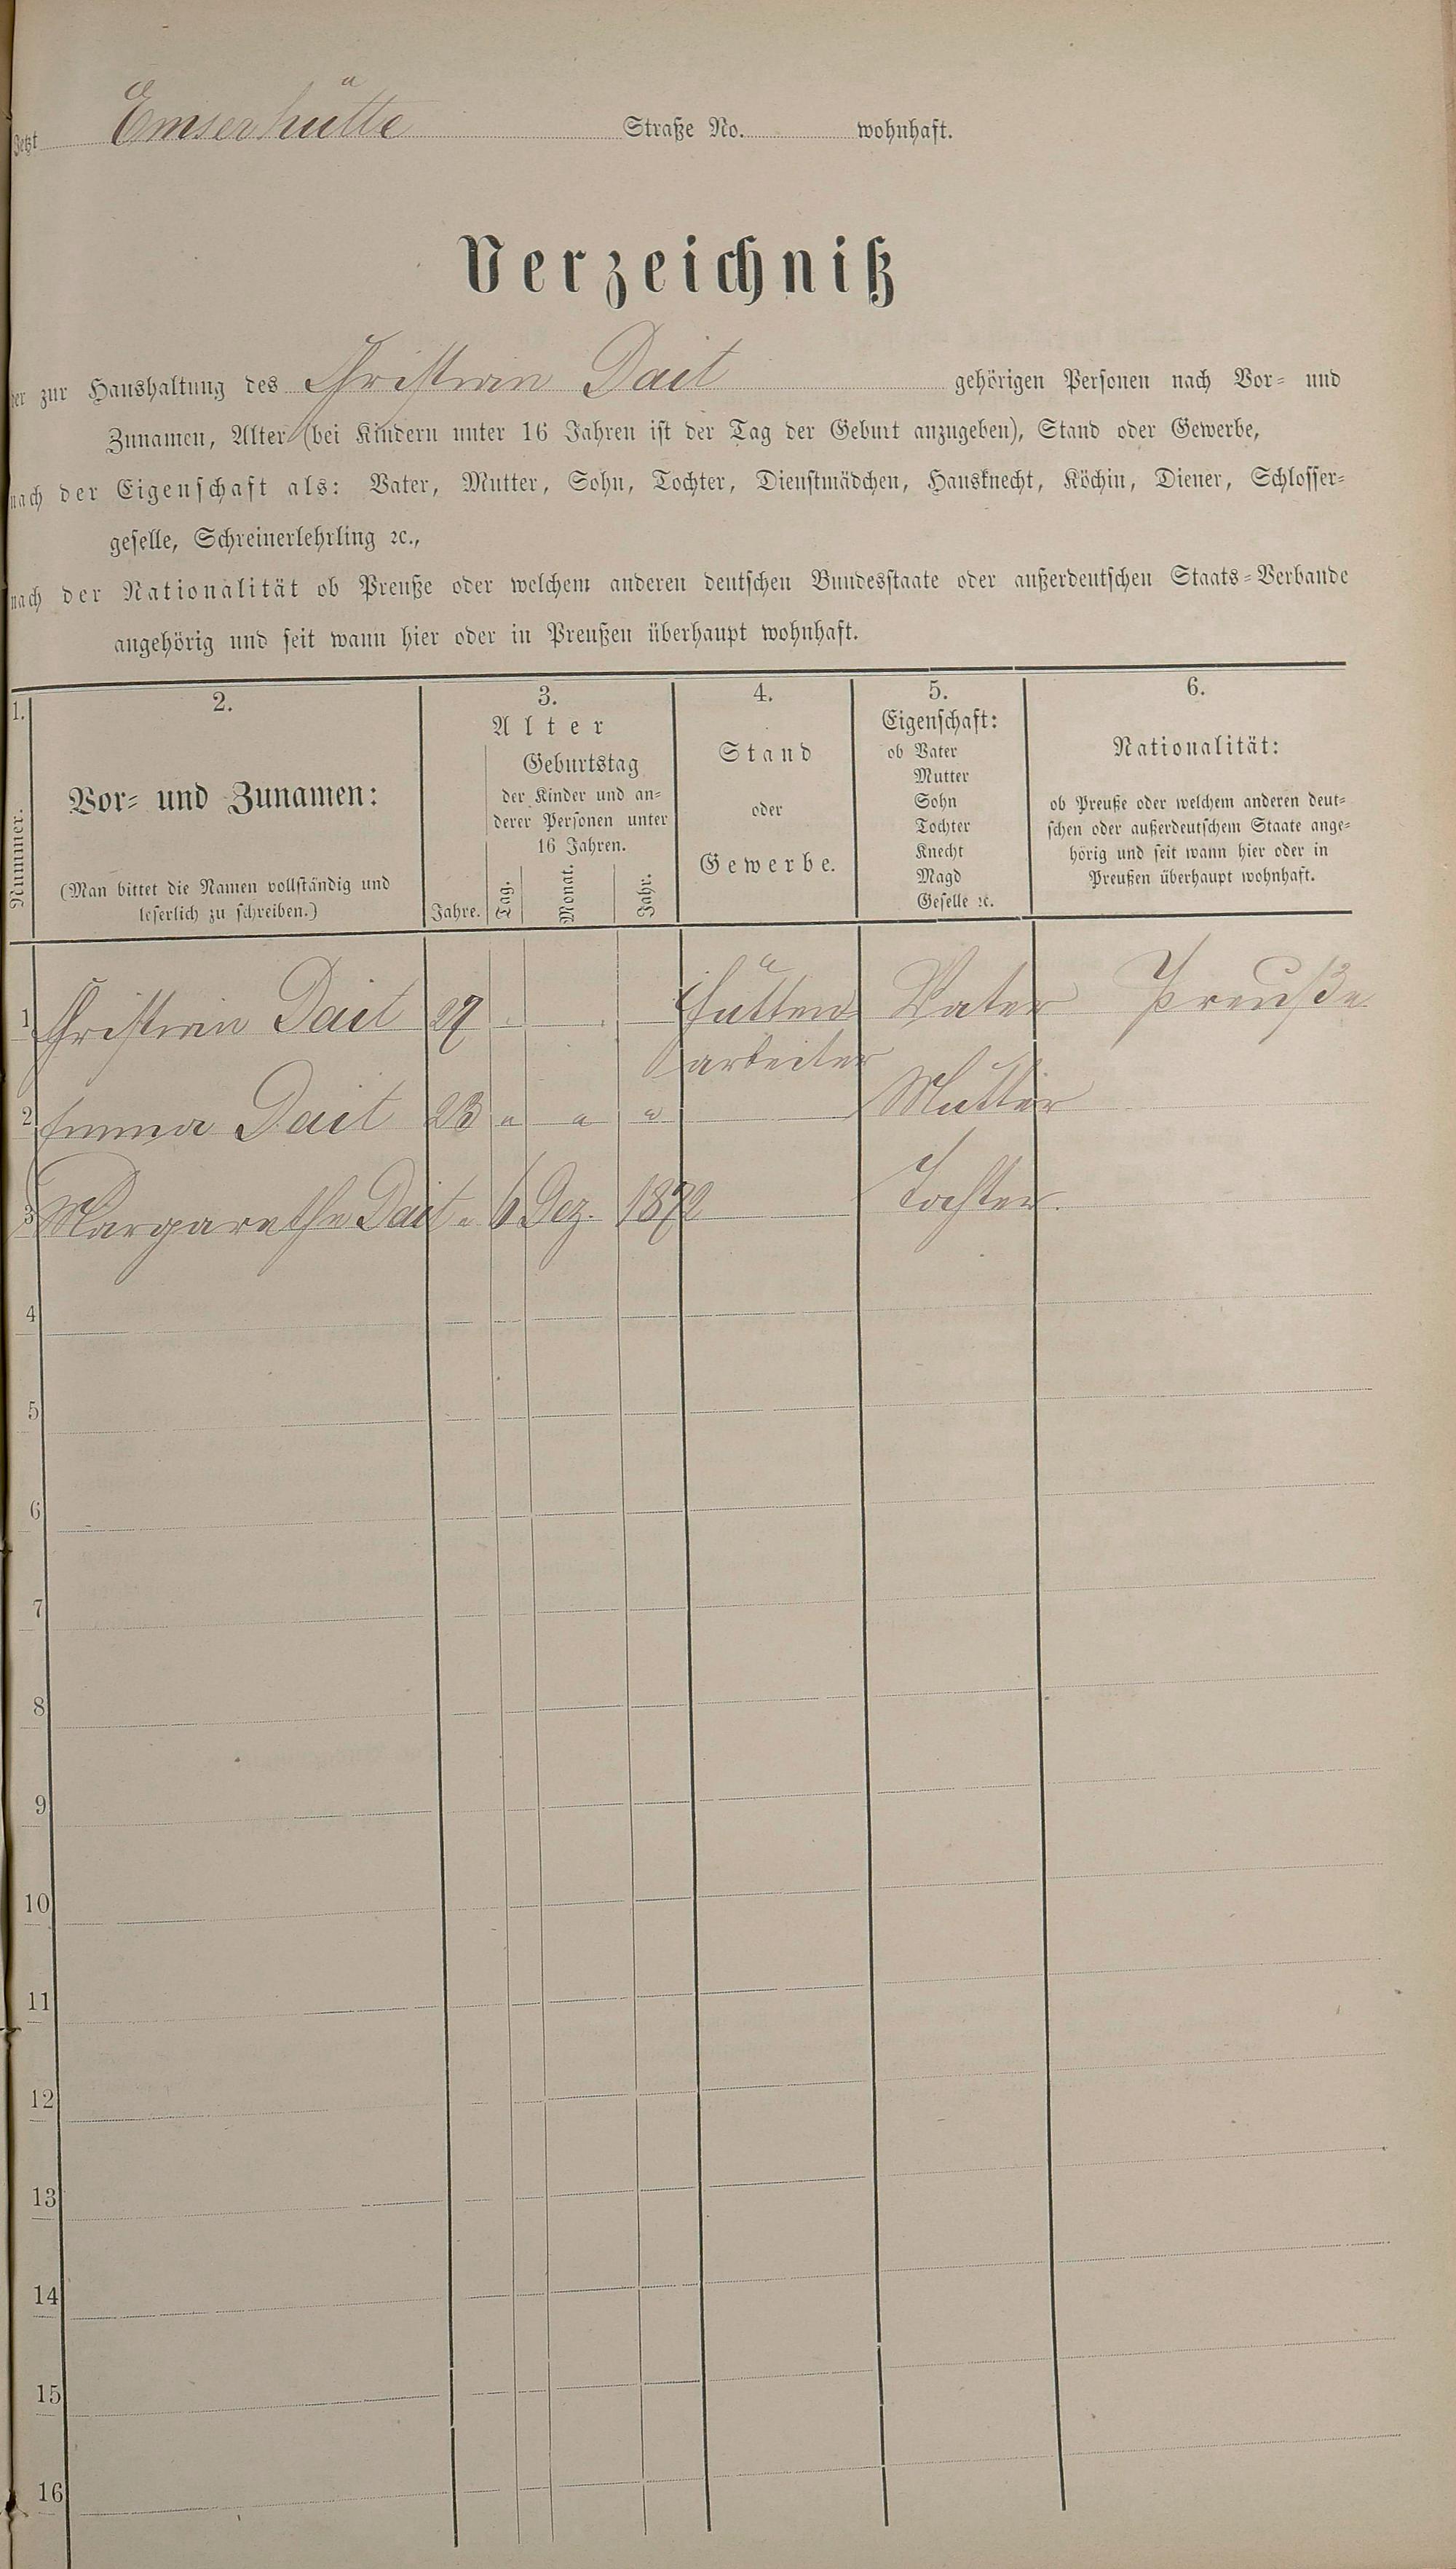 Jetzt Emserhütte Straße No. wohnhaft.
Verzeichniß
der zur Haushaltung des Christian Dait gehörigen Personen nach Vor- und
Zunamen, Alter (bei Kindern unter 16 Jahren ist der Tag der Geburt anzugeben), Stand oder Gewerbe,
nach der Eigenschaft als: Vater, Mutter, Sohn, Tochter, Dienstmädchen, Hausknecht, Köchin, Diener, Schlosser-
geselle, Schreinerlehrling ꝛc.,
nach der Nationalität ob Preuße oder welchem anderen deutschen Bundesstaate oder außerdeutschen Staats-Verbande
angehörig und seit wann hier oder in Preußen überhaupt wohnhaft.
1. 2. 3. 4. 5. 6.
Nummer.
Vor- und Zunamen:
(Man bittet die Namen vollständig und
leserlich zu schreiben.)
Alter
Jahre.
Geburtstag
der Kinder und an-
derer Personen unter
16 Jahren.
Tag. Monat. Jahr.
Stand
oder
Gewerbe.
Eigenschaft:
ob Vater
Mutter
Sohn
Tochter
Knecht
Magd
Geselle ꝛc.
Nationalität:
ob Preuße oder welchem anderen deut-
schen oder außerdeutschem Staate ange-
hörig und seit wann hier oder in
Preußen überhaupt wohnhaft.
1 Christian Dait 27 Hütten Vater Preuße
arbeiter
2 Emma Dait 23 " " " Mutter
3 Margarethe Dait " 6 Dez. 1872 Tochter.
4
5
6
7
8
9
10
11
12
13
14
15
16